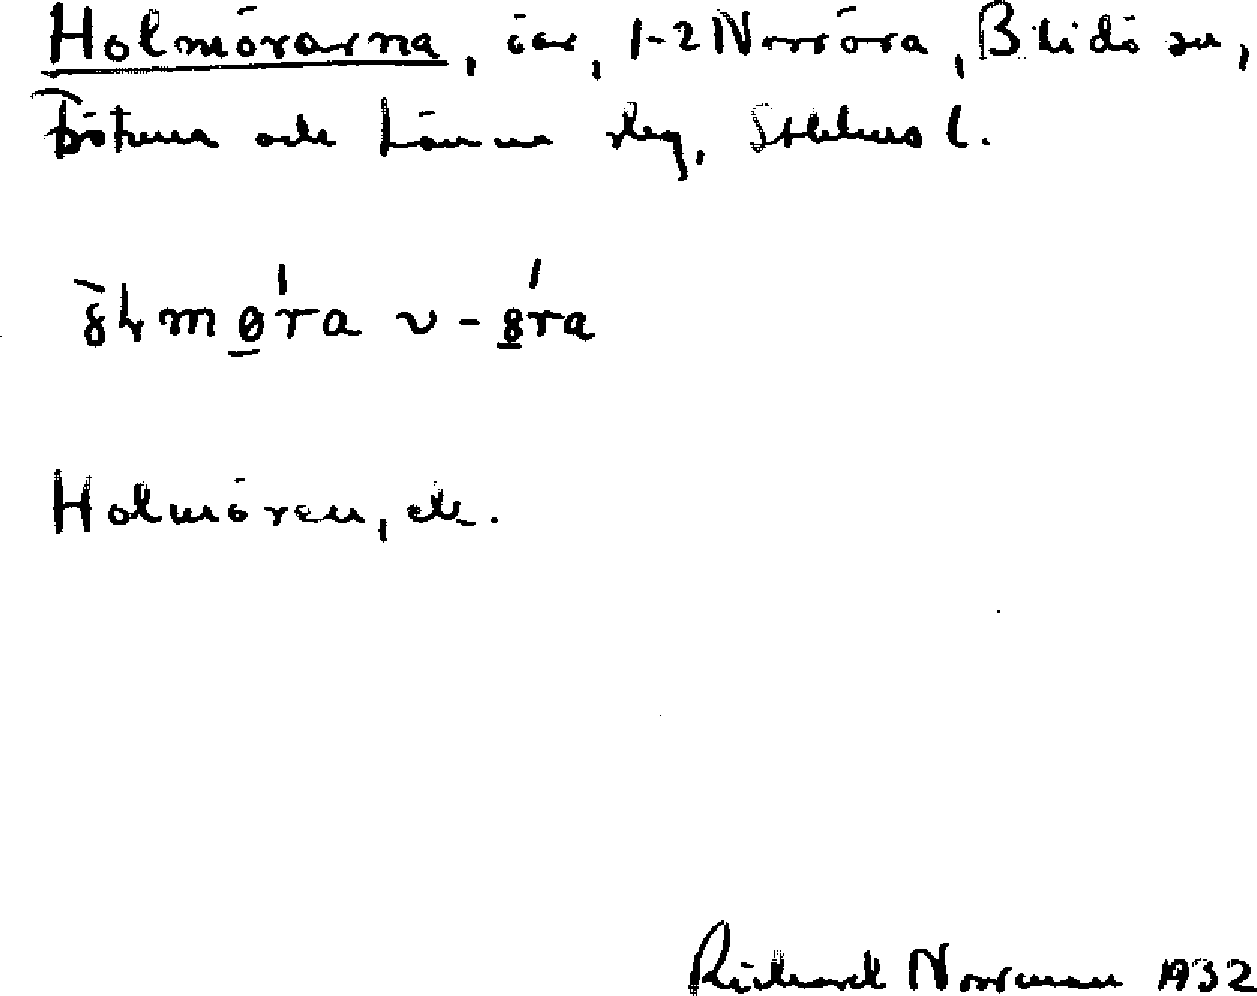 Holmörarna, öar, 1-2 Norröra, Blidö sn,
Frötuna och Länna skg, Sthlms l.
Holmören, ek.
Richard Norrman 1932